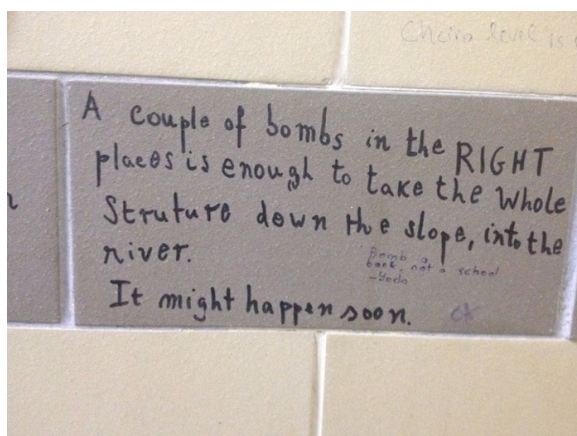 Chairo level is
A couple of bombs in the RIGHT
places is enough to take the whole
Struture down the slope, into the
river.
Bomb a
bank, not a school
-Yoda
It might happen soon.